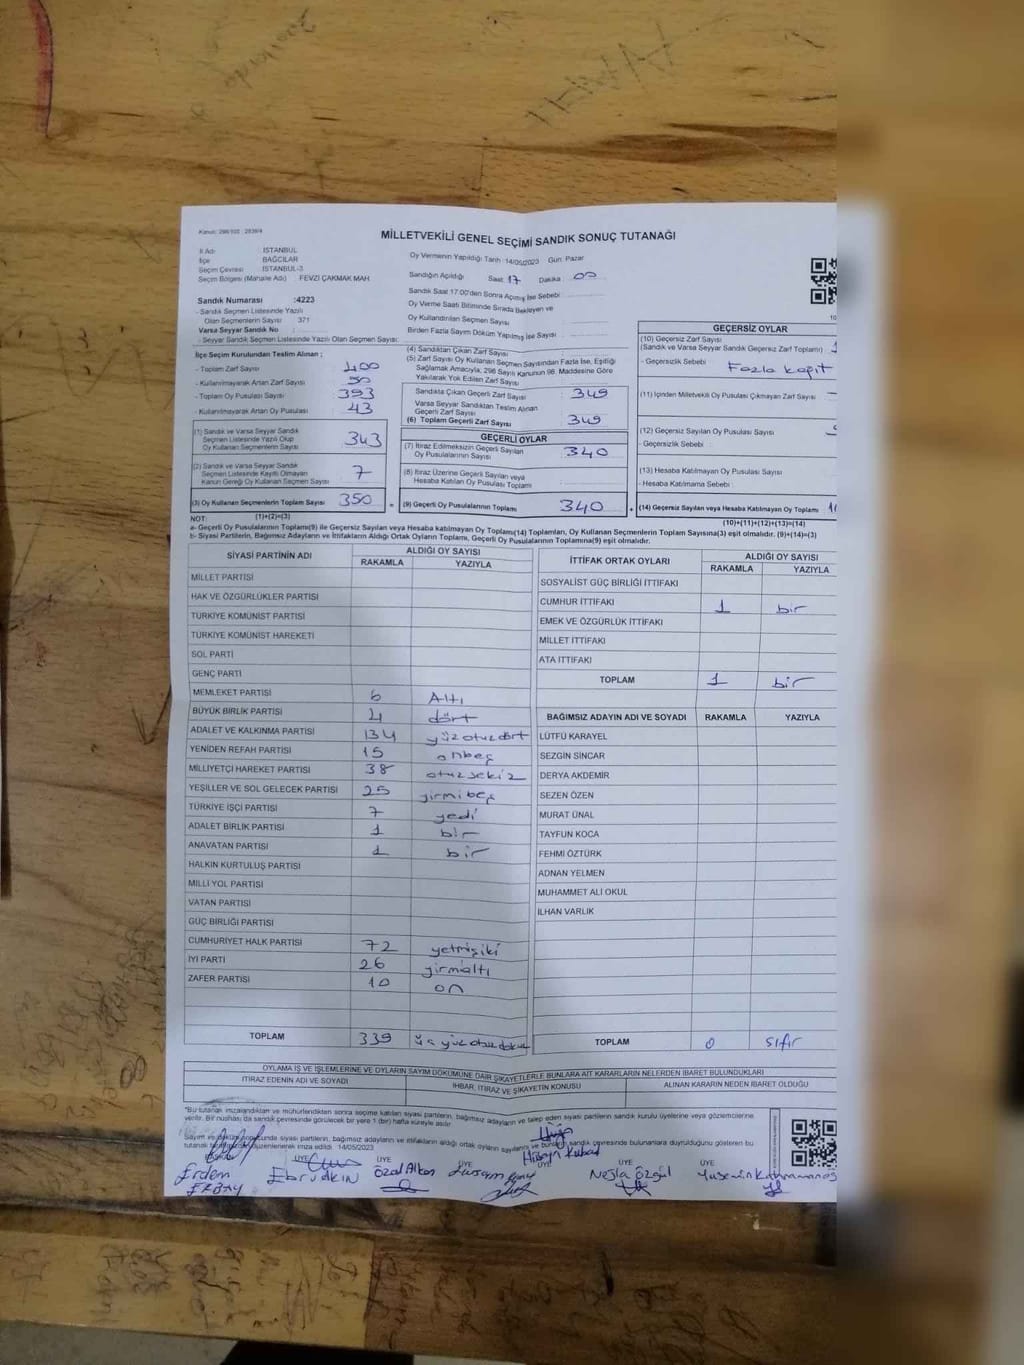 Kanun: 298/105 : 2839/4
MİLLETVEKİLİ GENEL SEÇİMİ SANDIK SONUÇ TUTANAĞI
İl Adı : İSTANBUL
İlçe : BAĞCILAR
Seçim Çevresi : İSTANBUL-3
Seçim Bölgesi (Mahalle Adı) FEVZİ ÇAKMAK MAH.
Oy Vermenin Yapıldığı Tarih :14/05/2023 Gün: Pazar
Sandığın Açıldığı Saat: 17 Dakika : 00
Sandık Saat 17:00'den Sonra Açılmış İse Sebebi :
Oy Verme Saati Bitiminde Sırada Bekleyen ve
Oy Kullandırılan Seçmen Sayısı :
Birden Fazla Sayım Döküm Yapılmış İse Sayısı :
Sandık Numarası :4223
- Sandık Seçmen Listesinde Yazılı
Olan Seçmenlerin Sayısı 371
Varsa Seyyar Sandık No :
- Seyyar Sandık Seçmen Listesinde Yazılı Olan Seçmen Sayısı:
İlçe Seçim Kurulundan Teslim Alınan ;
- Toplam Zarf Sayısı : 400
- Kullanılmayarak Artan Zarf Sayısı : 50
- Toplam Oy Pusulası Sayısı : 393
- Kullanılmayarak Artan Oy Pusulası : 43
(1) Sandık ve Varsa Seyyar Sandık
Seçmen Listesinde Yazılı Olup
Oy Kullanan Seçmenlerin Sayısı : 343
(2) Sandık ve Varsa Seyyar Sandık
Seçmen Listesinde Kayıtlı Olmayan
Kanun Gereği Oy Kullanan Seçmen Sayısı : 7
(3) Oy Kullanan Seçmenlerin Toplam Sayısı : 350 =
(1)+(2)=(3)
(4) Sandıktan Çıkan Zarf Sayısı :
(5) Zarf Sayısı Oy Kullanan Seçmen Sayısından Fazla İse, Eşitliği
Sağlamak Amacıyla, 298 Sayılı Kanunun 98. Maddesine Göre
Yakılarak Yok Edilen Zarf Sayısı :
Sandıkta Çıkan Geçerli Zarf Sayısı : 349
Varsa Seyyar Sandıktan Teslim Alınan
Geçerli Zarf Sayısı
(6) Toplam Geçerli Zarf Sayısı : 349
GEÇERLİ OYLAR
(7) İtiraz Edilmeksizin Geçerli Sayılan
Oy Pusulalarının Sayısı : 340
(8) İtiraz Üzerine Geçerli Sayılan veya
Hesaba Katılan Oy Pusulası Toplamı :
(9) Geçerli Oy Pusulalarının Toplamı : 340 +
GEÇERSİZ OYLAR
(10) Geçersiz Zarf Sayısı
(Sandık ve Varsa Seyyar Sandık Geçersiz Zarf Toplamı) :
- Geçersizlik Sebebi : Fazla kağıt
(11) İçinden Milletvekili Oy Pusulası Çıkmayan Zarf Sayısı :
(12) Geçersiz Sayılan Oy Pusulası Sayısı :
- Geçersizlik Sebebi :
(13) Hesaba Katılmayan Oy Pusulası Sayısı
- Hesaba Katılmama Sebebi :
(14) Geçersiz Sayılan veya Hesaba Katılmayan Oy Toplamı :
(10)+(11)+(12)+(13)=(14)
NOT:
a- Geçerli Oy Pusulalarının Toplamı(9) ile Geçersiz Sayılan veya Hesaba katılmayan Oy Toplamı(14) Toplamları, Oy Kullanan Seçmenlerin Toplam Sayısına(3) eşit olmalıdır. (9)+(14)=(3)
b- Siyasi Partilerin, Bağımsız Adayların ve İttifakların Aldığı Ortak Oyların Toplamı, Geçerli Oy Pusulalarının Toplamına(9) eşit olmalıdır.
SİYASİ PARTİNİN ADI ALDIĞI OY SAYISI
RAKAMLA YAZIYLA
MİLLET PARTİSİ
HAK VE ÖZGÜRLÜKLER PARTİSİ
TÜRKİYE KOMÜNİST PARTİSİ
TÜRKİYE KOMÜNİST HAREKETİ
SOL PARTİ
GENÇ PARTİ
MEMLEKET PARTİSİ 6 Altı
BÜYÜK BİRLİK PARTİSİ 4 dört
ADALET VE KALKINMA PARTİSİ 134 yüzotuzdört
YENİDEN REFAH PARTİSİ 15 onbeş
MİLLİYETÇİ HAREKET PARTİSİ 38 otuzsekiz
YEŞİLLER VE SOL GELECEK PARTİSİ 25 yirmibeş
TÜRKİYE İŞÇİ PARTİSİ 7 yedi
ADALET BİRLİK PARTİSİ 1 bir
ANAVATAN PARTİSİ 1 bir
HALKIN KURTULUŞ PARTİSİ
MİLLİ YOL PARTİSİ
VATAN PARTİSİ
GÜÇ BİRLİĞİ PARTİSİ
CUMHURİYET HALK PARTİSİ 72 yetmişiki
İYİ PARTİ 26 yirmialtı
ZAFER PARTİSİ 10 on
TOPLAM 339 üçyüzotuzdokuz
İTTİFAK ORTAK OYLARI ALDIĞI OY SAYISI
RAKAMLA YAZIYLA
SOSYALİST GÜÇ BİRLİĞİ İTTİFAKI
CUMHUR İTTİFAKI 1 bir
EMEK VE ÖZGÜRLÜK İTTİFAKI
MİLLET İTTİFAKI
ATA İTTİFAKI
TOPLAM 1 bir
BAĞIMSIZ ADAYIN ADI VE SOYADI RAKAMLA YAZIYLA
LÜTFÜ KARAYEL
SEZGİN SİNCAR
DERYA AKDEMİR
SEZEN ÖZEN
MURAT ÜNAL
TAYFUN KOCA
FEHMİ ÖZTÜRK
ADNAN YELMEN
MUHAMMET ALİ OKUL
İLHAN VARLIK
TOPLAM 0 sıfır
OYLAMA İŞ VE İŞLEMLERİNE VE OYLARIN SAYIM DÖKÜMÜNE DAİR ŞİKAYETLERLE BUNLARA AİT KARARLARIN NELERDEN İBARET BULUNDUKLARI
İTİRAZ EDENİN ADI VE SOYADI İHBAR, İTİRAZ VE ŞİKAYETİN KONUSU ALINAN KARARIN NEDEN İBARET OLDUĞU
*Bu tutanak imzalandıktan ve mühürlendikten sonra seçime katılan siyasi partilerin, bağımsız adayların ve talep eden siyasi partilerin sandık kurulu üyelerine veya gözlemcilerine
verilir. Bir nüshası da sandık çevresinde görülecek bir yere 1 (bir) hafta süreyle asılır.
siyasi partilerin, bağımsız adayların ve ittifakların aldığı ortak oyların sandık çevresinde bulunanlara duyrulduğunu gösteren bu
tutanak düzenlenerek imza edildi. 14/05/2023
ÜYE ÜYE ÜYE ÜYE ÜYE ÜYE
Erdem ERBAY
Ebru
Özal Alkan
Neşla Özgül